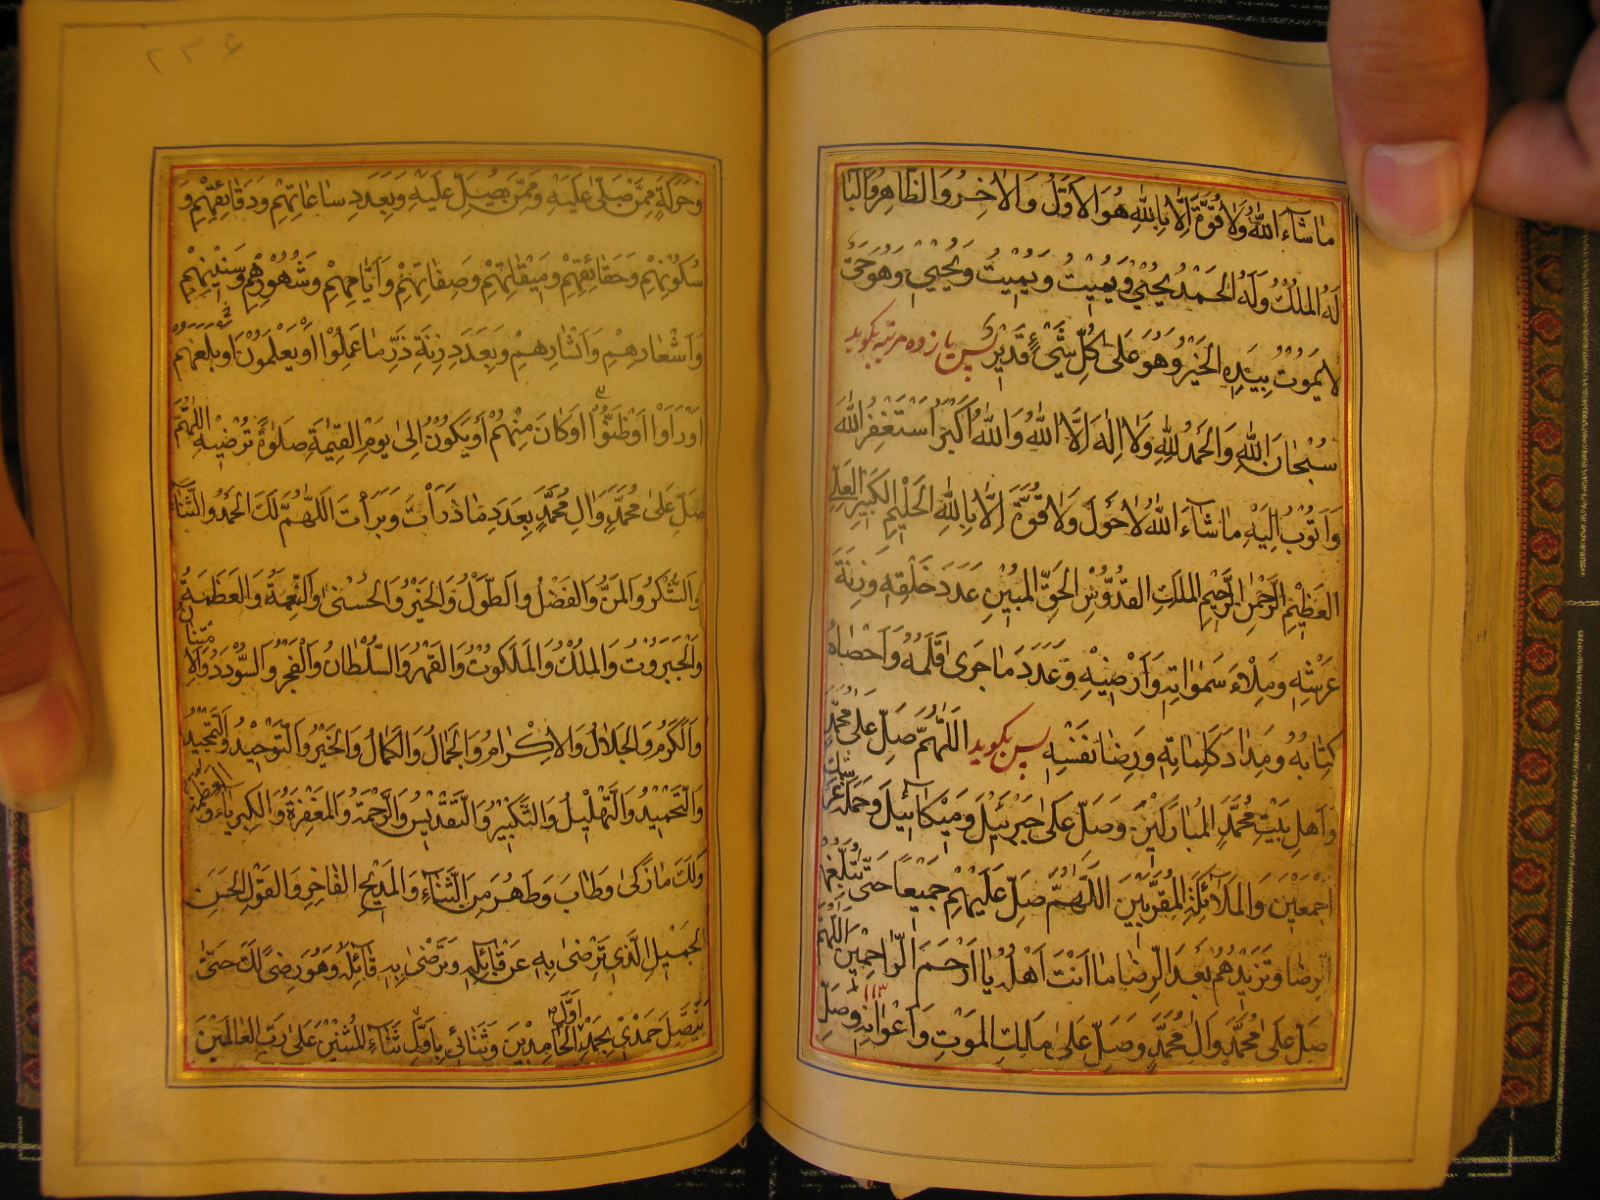 ما شاء الله ولا قوة الا بالله هو الاول والاخر والظاهر والبا
له الملك وله الحمد يحيي ويميت ويميت ويحيي وهو حي
لا يموت بيده الخير وهو على كل شيء قدير پس پازده مرتبه بگوید
سبحان الله والحمد لله ولا اله الا الله والله اكبر استغفر الله
واتوب اليه ما شاء الله لا حول ولا قوة الا بالله الحليم الكبير العلي
العظيم الرحمن الرحيم الملك القدوس الحق المبين عدد خلقه وزنة
عرشه وملاء سمواته وارضيه وعدد ما جرى قلمه واحصاه
كتابه ومداد كلماته ورضا نفسه پس بگوید اللهم صل على محمد
واهل بيت محمد المباركين وصل على جبرئيل وميكائيل وحملة عرشك
اجمعين والملائكة المقربين اللهم صل عليهم جميعا حتى تبلغهم
الرضا وتزيدهم بعد الرضا ما انت اهله يا ارحم الراحمين اللهم
صل على محمد وال محمد وصل على ملك الموت واعوانه وصل
۲۳۶
وحركة ممن صلى عليه وممن يصل عليه وبعدد ساعاتهم ودقائقهم و
سكونهم وحقائقهم وميقاتهم وصفاتهم وايامهم وشهورهم وسنينهم
واشعارهم وابشارهم وبعدد زنة ذر ما عملوا او يعلمون او بلغهم
او راوا او ظنوا او كان منهم او يكون الى يوم القيمة صلوة ترضيه اللهم
صل على محمد وال محمد بعدد ما ذرات وبرات اللهم لك الحمد والثناء
والشكر والمن والفضل والطول والخير والحسنى والنعمة والعظمة
والجبروت والملك والملكوت والقهر والسلطان والفخر والسودد والامتنان
والكرم والجلال والاكرام والجمال والكمال والخير والتوحيد والتمجيد
والتحميد والتهليل والتكبير والتقديس والرحمة والمغفرة والكبرياء والعظمة
ولك ما زكى وطاب وطهر من الثناء والمديح الفاخر والقول الحسن
الجميل الذي ترضى به عن قائله وترضى به قائله وهو رضى لك حتى
يتصل حمدي بحمد اول الحامدين وثنائي باول ثناء المثنين على رب العالمين